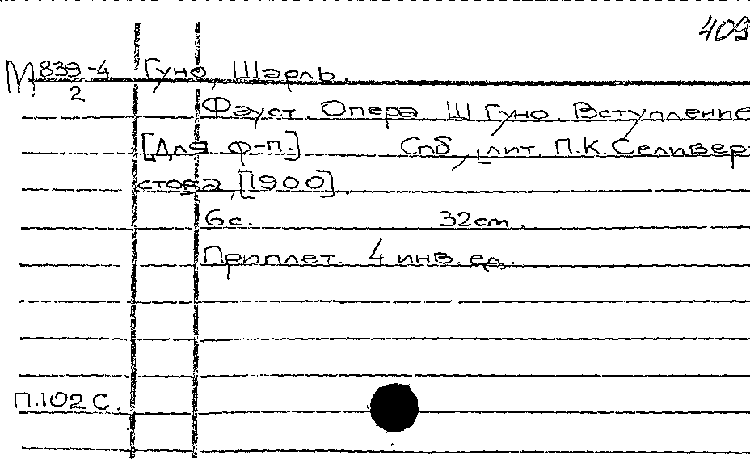 409
М 839-4 Гуно, Шарль.
2
Фауст. Опера Ш. Гуно. Вступление
[Для ф-п.] Спб., лит. П.К. Селивер-
стова, [1900].
6 с. 32 см.
Приплет. 4 инв. ед.
П.102 С.